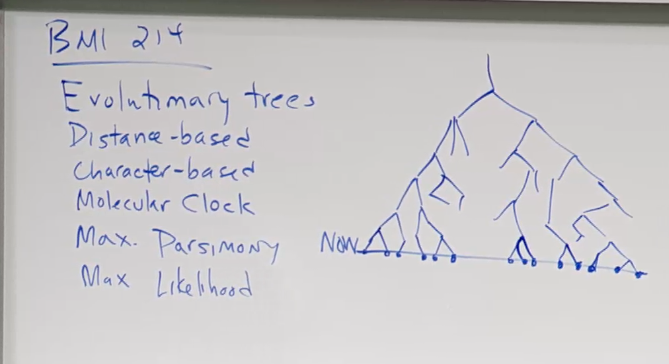 BMI 214
Evolutionary trees
Distance-based
Character-based
Molecular Clock
Max. Parsimony
Max Likelihood
Now